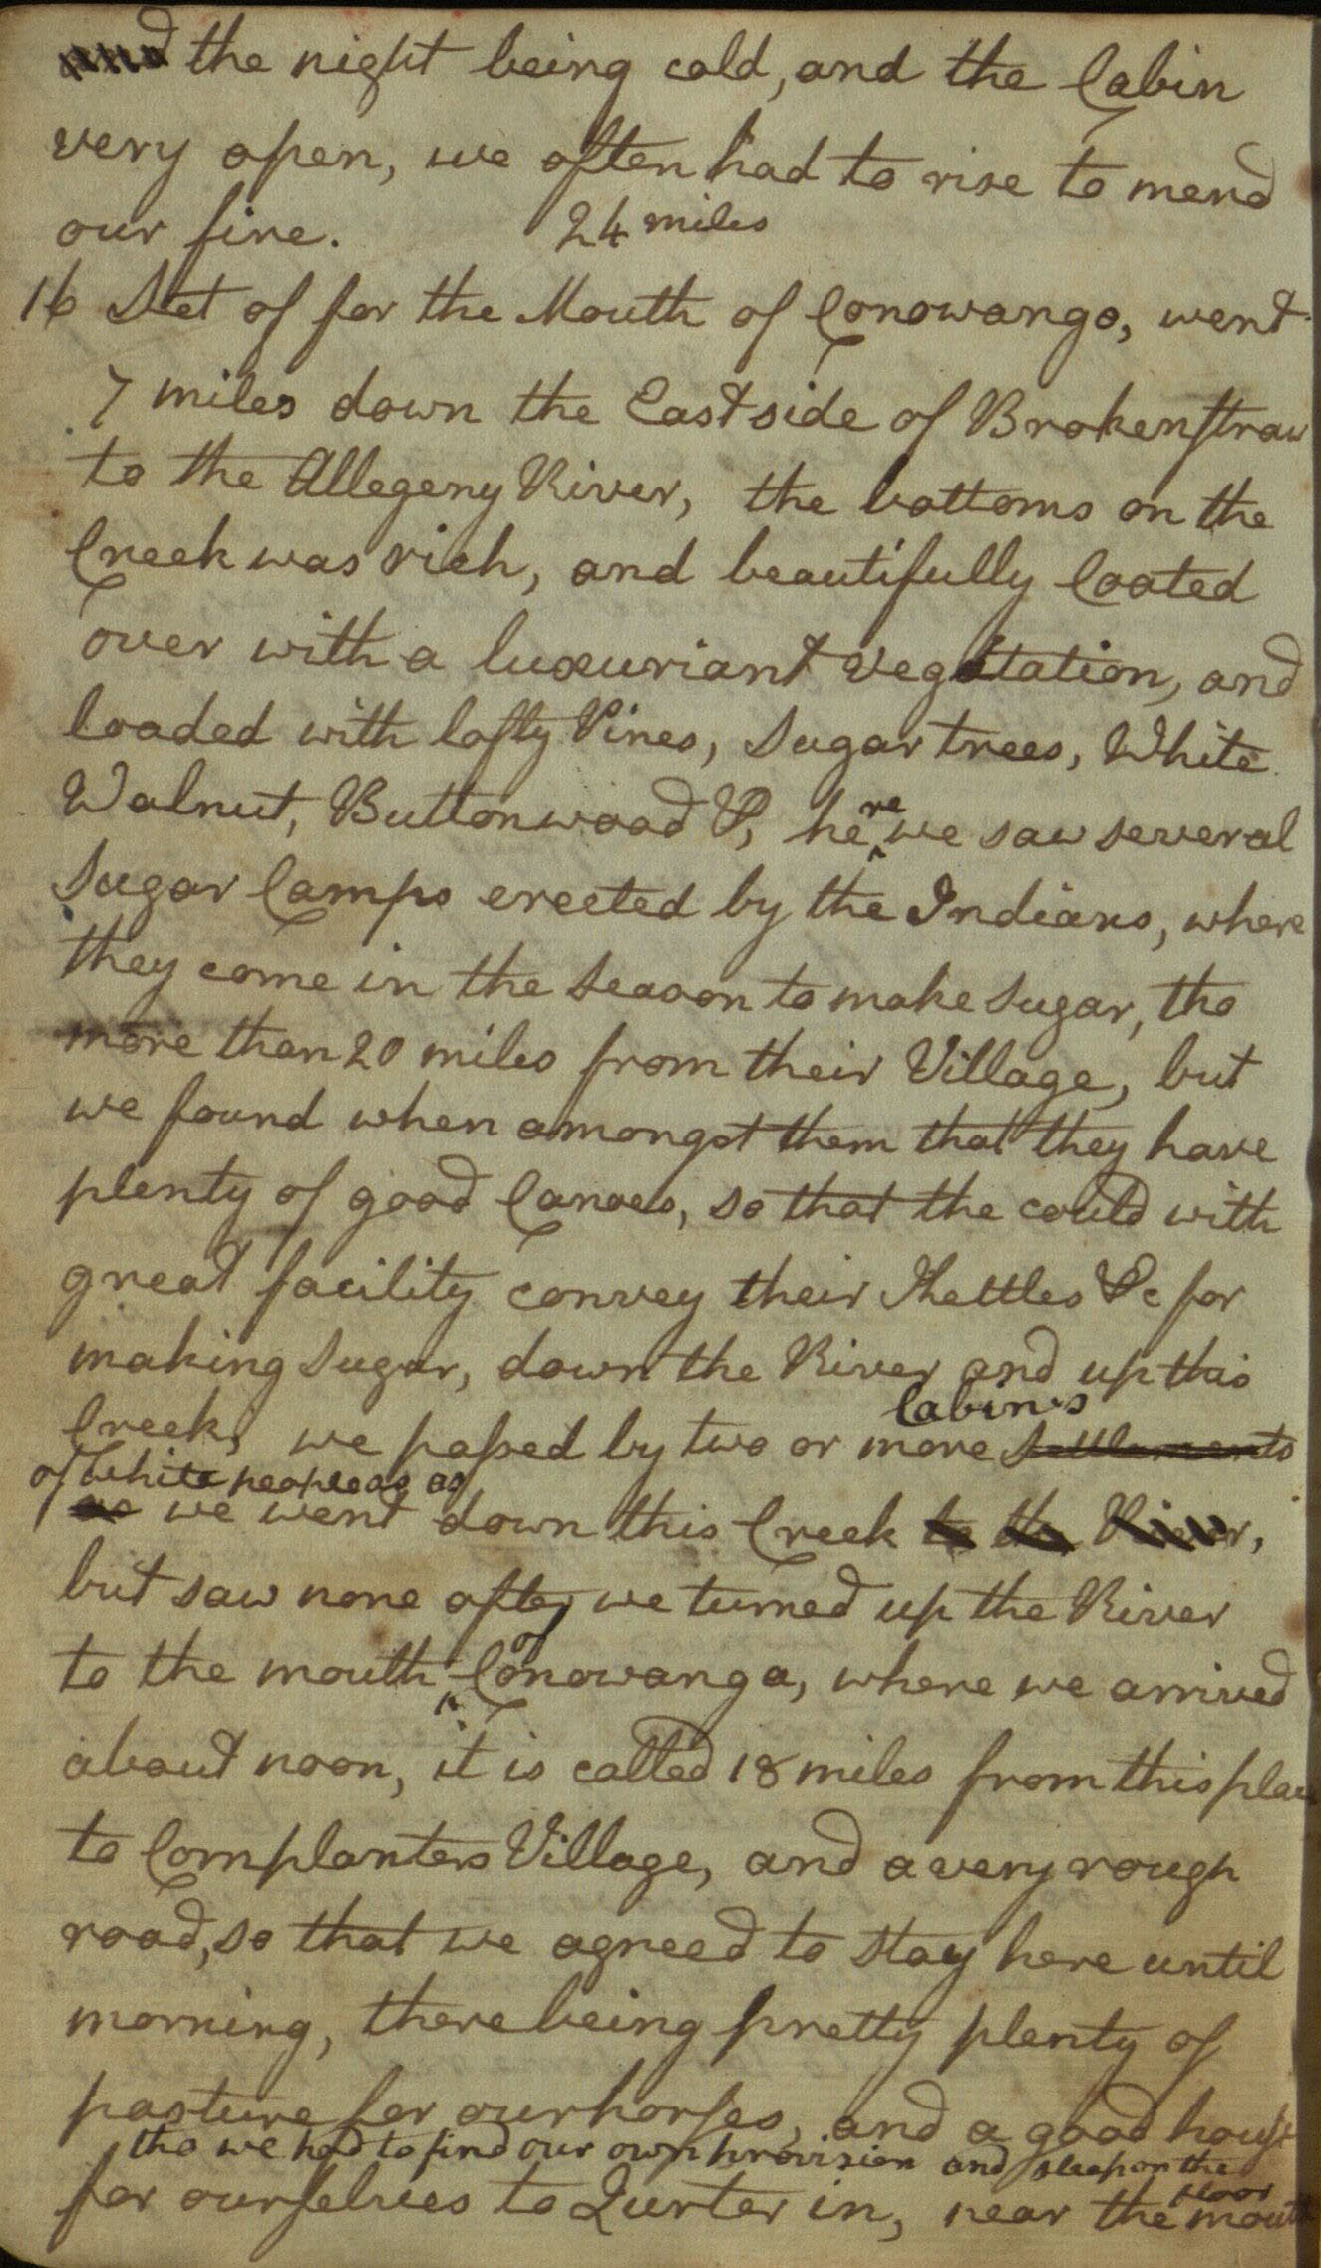 and the night being cold, and the Cabin
very open, we often had to rise to mend
our fire. 24 miles
16 Set of for the Mouth of Conowango, went
7 miles down the East side of Brokenstraw
to the Allegeny River, the bottoms on the
Creek was rich, and beautifully Coated
over with a luxuriant vegitation, and
loaded with lofty Pines, Sugar trees, White
Walnut, Buttonwood &, here we saw several
Sugar Camps erected by the Indians, where
they come in the Season to make Sugar, tho
more than 20 miles from their Village, but
we found when amongst them that they have
plenty of good Canoes, so that the could with
great facility convey their Kettles &c for
making Sugar, down the River and up this
Cabins
Creek, we passed by two or more settlements
of White people as as
as we went down this Creek to the River,
but saw none after we turned up the River
to the mouth of Conowanga, where we arrived
about noon, it is called 18 miles from this place
to Cornplanters Village, and a very rough
road, so that we agreed to stay here until
morning, there being pretty plenty of
pasture for our horses, and a good house
tho we had to find our own provision and sleep on the floor
for ourselves to Qurter in, near the mouth